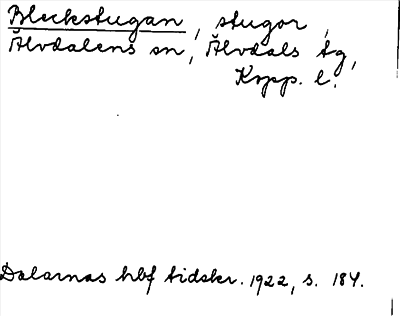 Bleckstugan, stugor,
Älvdalens sn, Älvdals tg,
Kopp. l.
Dalarnas hbf tidskr. 1922, s. 184.